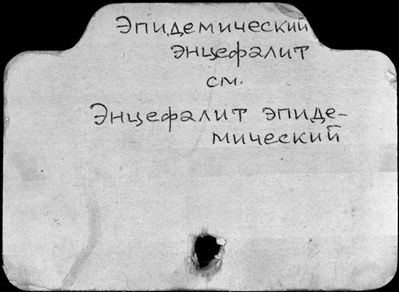 Эпидемический
энцефалит
см.
Энцефалит эпиде-
мический